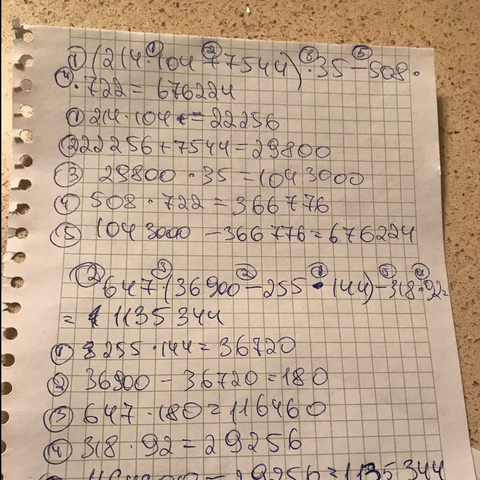 ① (214 · 104 + 7544) · 35 - 508 ·
· 722 = 676224
① 214 · 104 = 22256
② 22256 + 7544 = 29800
③ 29800 · 35 = 1043000
④ 508 · 722 = 366776
⑤ 1043000 - 366776 = 676224
② 647 · (36900 - 255 · 144) - 318 · 92 =
= 1135344
① 255 · 144 = 36720
② 36900 - 36720 = 180
③ 647 · 180 = 116460
④ 318 · 92 = 29256
- 29256 = 1135344